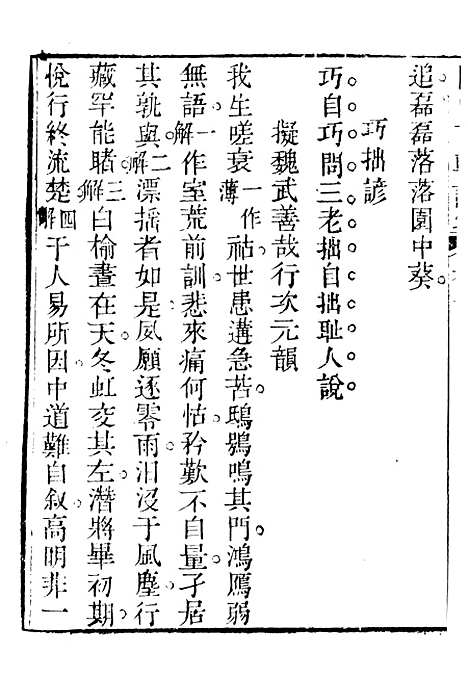 追磊磊落落園中葵。
巧拙諺
巧自巧問三老拙自拙耻人說。
擬魏武善哉行次元韻
我生嗟衰一作薄祜世患遘急苦。鴟鴞鳴其門。鴻鴈弱
無語一解作室荒前訓。悲來痛何怙。矜歎不自量。孑居
其孰與二解漂搖者如是。夙願逐零雨。汨沒于風塵。行
藏罕能睹三解白楡晝在天。冬虹変其左。潛將畢初期。
悅行終流楚四解于人易所因。中道難自叙。高明非一